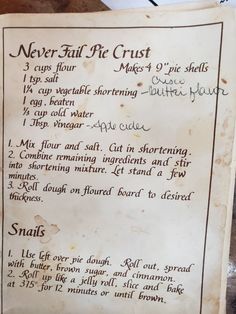 Never Fail Pie Crust
3 cups flour Makes 4 9" pie shells
1 tsp. salt Crisco
1¼ cup vegetable shortening – butter flavor
1 egg, beaten
⅓ cup cold water
1 Tbsp. vinegar – apple cider
1. Mix flour and salt. Cut in shortening.
2. Combine remaining ingredients and stir
into shortening mixture. Let stand a few
minutes.
3. Roll dough on floured board to desired
thickness.
Snails
1. Use left over pie dough. Roll out, spread
with butter, brown sugar, and cinnamon.
2. Roll up like a jelly roll, slice and bake
at 375° for 12 minutes or until brown.